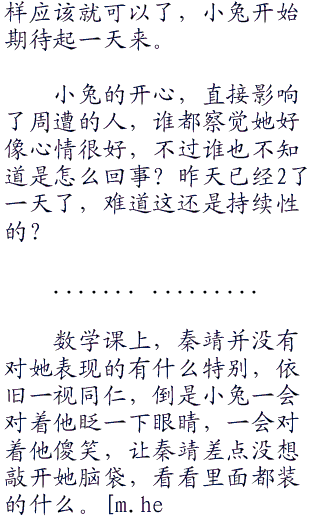 样应该就可以了，小兔开始
期待起一天来。
小兔的开心，直接影响
了周遭的人，谁都察觉她好
像心情很好，不过谁也不知
道是怎么回事？昨天已经2了
一天了，难道这还是持续性
的？
....... .........
数学课上，秦靖并没有
对她表现的有什么特别，依
旧一视同仁，倒是小兔一会
对着他眨一下眼睛，一会对
着他傻笑，让秦靖差点没想
敲开她脑袋，看看里面都装
的什么。[m.he